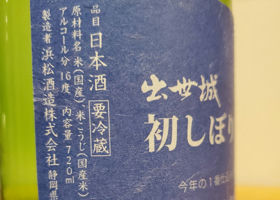 品目 日本酒 要冷蔵
原材料名 米(国産)米こうじ(国産米)
アルコール分 16度 内容量 720ml
製造者 浜松酒造株式会社 静岡県
出世城
初しぼり
今年の1番仕込